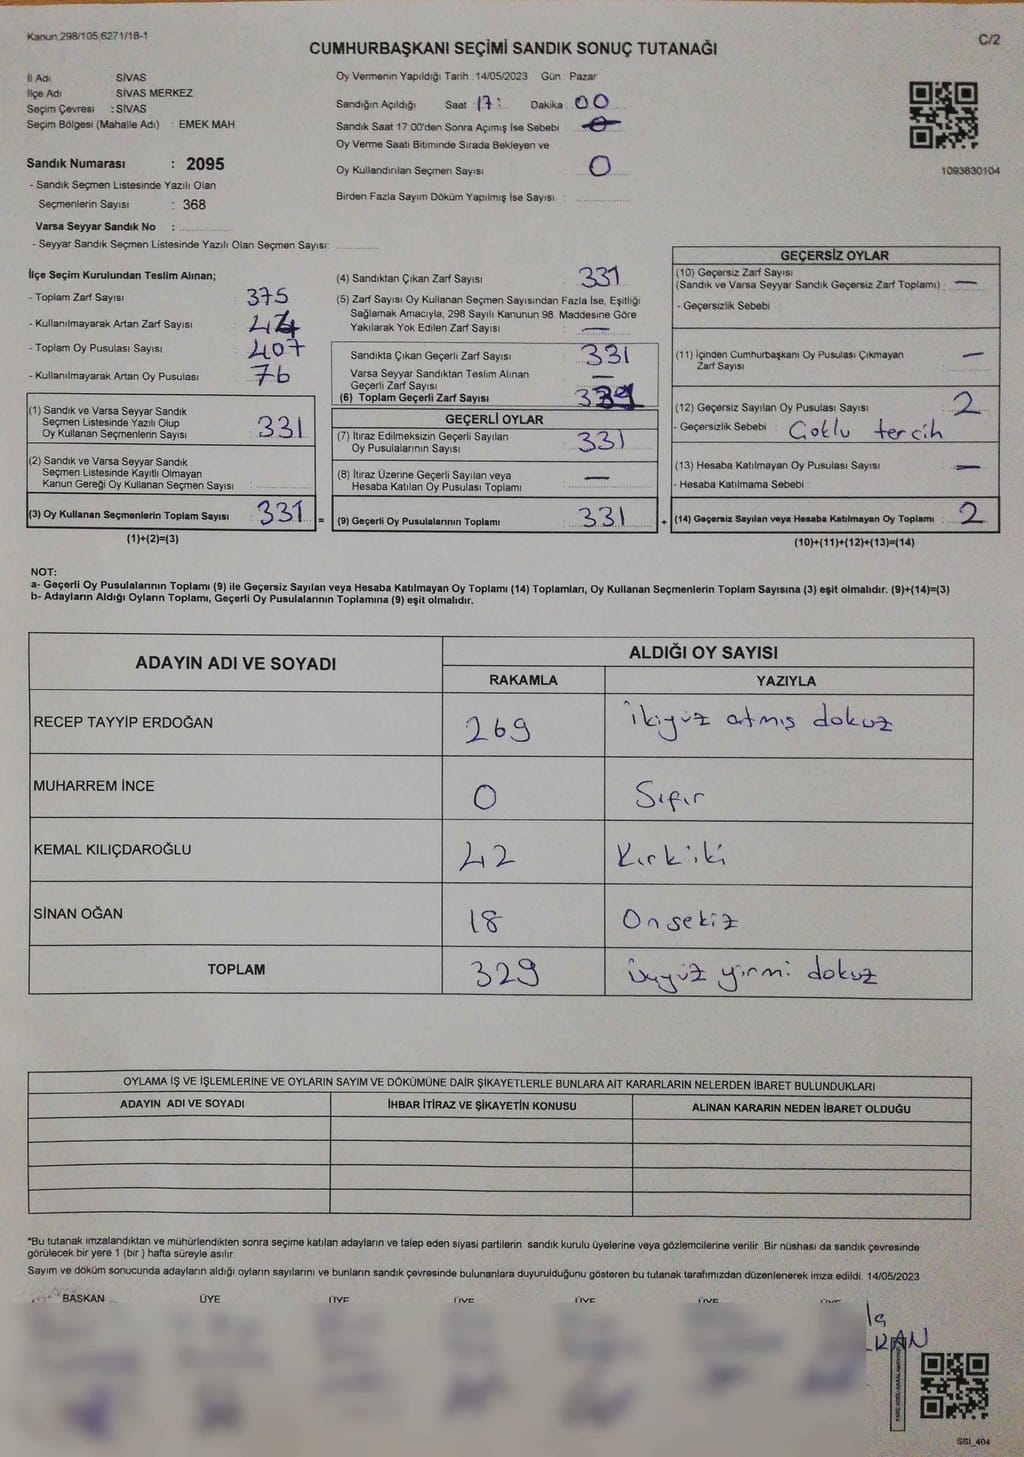 Kanun 298/105,6271/18-1
C/2
CUMHURBAŞKANI SEÇİMİ SANDIK SONUÇ TUTANAĞI
İl Adı SİVAS
İlçe Adı SİVAS MERKEZ
Seçim Çevresi : SİVAS
Seçim Bölgesi (Mahalle Adı) : EMEK MAH
Sandık Numarası : 2095
- Sandık Seçmen Listesinde Yazılı Olan
Seçmenlerin Sayısı : 368
Varsa Seyyar Sandık No :
- Seyyar Sandık Seçmen Listesinde Yazılı Olan Seçmen Sayısı:
Oy Vermenin Yapıldığı Tarih : 14/05/2023 Gün : Pazar
Sandığın Açıldığı Saat : 17: Dakika : 00
Sandık Saat 17:00'den Sonra Açımış İse Sebebi
Oy Verme Saati Bitiminde Sırada Bekleyen ve
Oy Kullandırılan Seçmen Sayısı 0
Birden Fazla Sayım Döküm Yapılmış İse Sayısı :
1093830104
İlçe Seçim Kurulundan Teslim Alınan;
- Toplam Zarf Sayısı : 375
- Kullanılmayarak Artan Zarf Sayısı : 44
- Toplam Oy Pusulası Sayısı : 407
- Kullanılmayarak Artan Oy Pusulası : 76
(1) Sandık ve Varsa Seyyar Sandık
Seçmen Listesinde Yazılı Olup
Oy Kullanan Seçmenlerin Sayısı : 331
(2) Sandık ve Varsa Seyyar Sandık
Seçmen Listesinde Kayıtlı Olmayan
Kanun Gereği Oy Kullanan Seçmen Sayısı :
(3) Oy Kullanan Seçmenlerin Toplam Sayısı : 331 =
(1)+(2)=(3)
(4) Sandıktan Çıkan Zarf Sayısı : 331
(5) Zarf Sayısı Oy Kullanan Seçmen Sayısından Fazla İse, Eşitliği
Sağlamak Amacıyla, 298 Sayılı Kanunun 98. Maddesine Göre
Yakılarak Yok Edilen Zarf Sayısı : —
Sandıkta Çıkan Geçerli Zarf Sayısı : 331
Varsa Seyyar Sandıktan Teslim Alınan
Geçerli Zarf Sayısı : —
(6) Toplam Geçerli Zarf Sayısı :
GEÇERLİ OYLAR
(7) İtiraz Edilmeksizin Geçerli Sayılan
Oy Pusulalarının Sayısı : 331
(8) İtiraz Üzerine Geçerli Sayılan veya
Hesaba Katılan Oy Pusulası Toplamı : —
(9) Geçerli Oy Pusulalarının Toplamı : 331 +
GEÇERSİZ OYLAR
(10) Geçersiz Zarf Sayısı
(Sandık ve Varsa Seyyar Sandık Geçersiz Zarf Toplamı) : —
- Geçersizlik Sebebi :
(11) İçinden Cumhurbaşkanı Oy Pusulası Çıkmayan
Zarf Sayısı : —
(12) Geçersiz Sayılan Oy Pusulası Sayısı : 2
- Geçersizlik Sebebi : Çoklu tercih
(13) Hesaba Katılmayan Oy Pusulası Sayısı : —
- Hesaba Katılmama Sebebi :
(14) Geçersiz Sayılan veya Hesaba Katılmayan Oy Toplamı : 2
(10)+(11)+(12)+(13)=(14)
NOT:
a- Geçerli Oy Pusulalarının Toplamı (9) ile Geçersiz Sayılan veya Hesaba Katılmayan Oy Toplamı (14) Toplamları, Oy Kullanan Seçmenlerin Toplam Sayısına (3) eşit olmalıdır. (9)+(14)=(3)
b- Adayların Aldığı Oyların Toplamı, Geçerli Oy Pusulalarının Toplamına (9) eşit olmalıdır.
ADAYIN ADI VE SOYADI
ALDIĞI OY SAYISI
RAKAMLA YAZIYLA
RECEP TAYYİP ERDOĞAN 269 ikiyüz atmış dokuz
MUHARREM İNCE 0 Sıfır
KEMAL KILIÇDAROĞLU 42 Kırkiki
SİNAN OĞAN 18 Onsekiz
TOPLAM 329 üçyüz yirmi dokuz
OYLAMA İŞ VE İŞLEMLERİNE VE OYLARIN SAYIM VE DÖKÜMÜNE DAİR ŞİKAYETLERLE BUNLARA AİT KARARLARIN NELERDEN İBARET BULUNDUKLARI
ADAYIN ADI VE SOYADI İHBAR İTİRAZ VE ŞİKAYETİN KONUSU ALINAN KARARIN NEDEN İBARET OLDUĞU
*Bu tutanak imzalandıktan ve mühürlendikten sonra seçime katılan adayların ve talep eden siyasi partilerin sandık kurulu üyelerine veya gözlemcilerine verilir. Bir nüshası da sandık çevresinde
görülecek bir yere 1 (bir ) hafta süreyle asılır.
Sayım ve döküm sonucunda adayların aldığı oyların sayılarını ve bunların sandık çevresinde bulunanlara duyurulduğunu gösteren bu tutanak tarafımızdan düzenlenerek imza edildi. 14/05/2023
BAŞKAN ÜYE ÜYE ÜYE ÜYE ÜYE
SSI_404